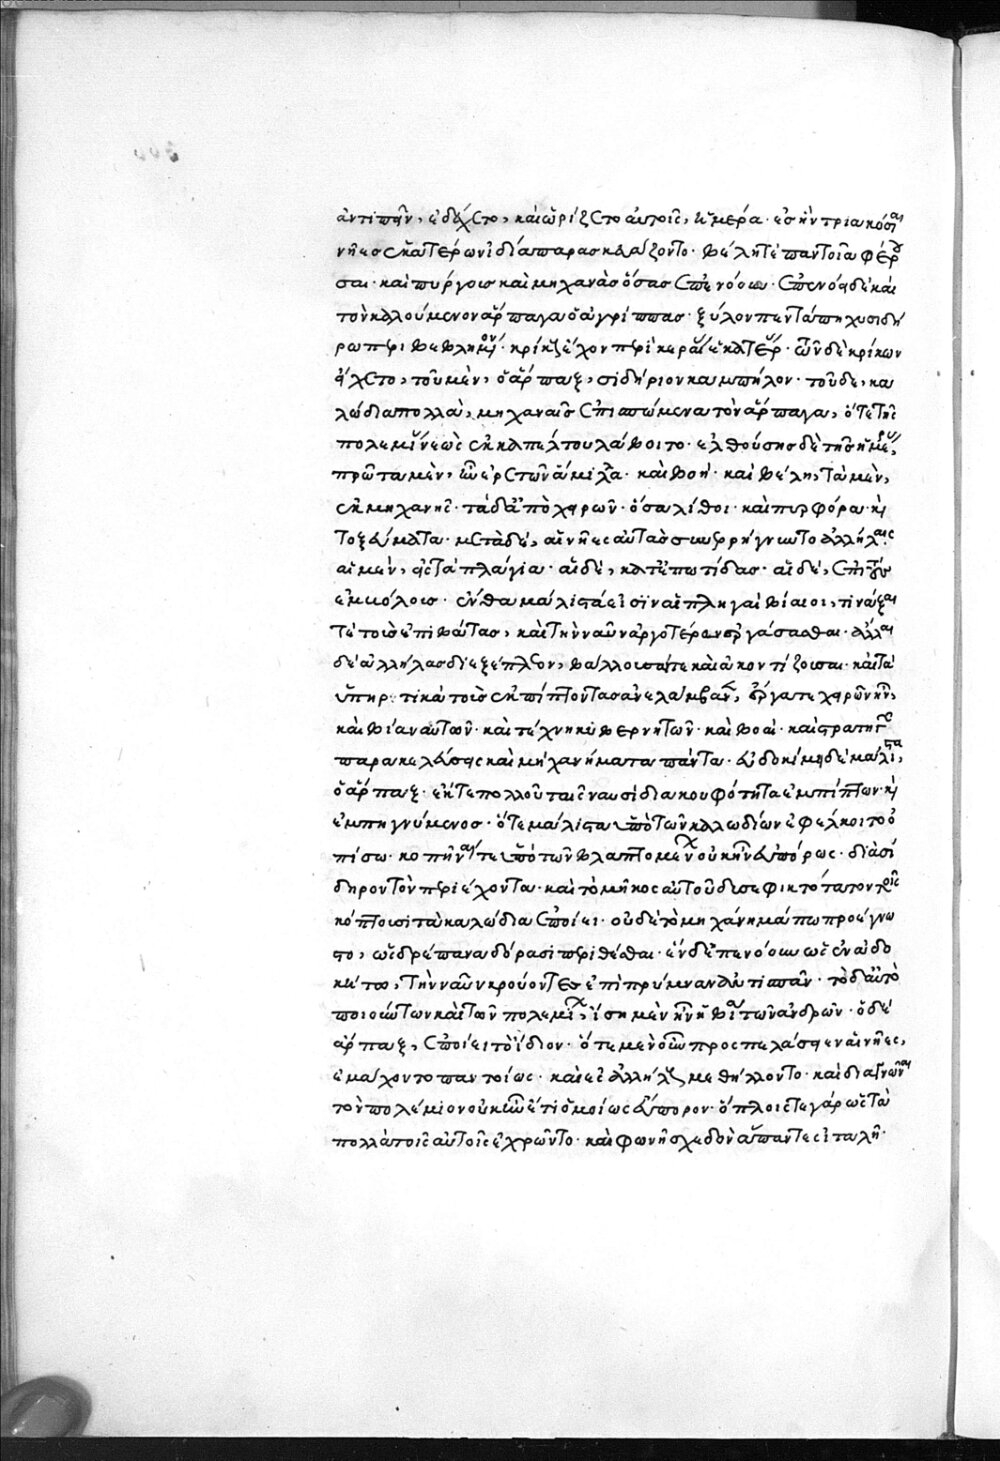 ἀντιπεῖν, ἐδέχετο, καὶ ὡρίζετο αὐτοῖς, ἡμέρα· ἐς ἣν τριακόσιαι
νῆες ἑκατέρων ἰδίᾳ παρασκευάζοντο· βέλη τὲ παντοῖα φέρου
σαι· καὶ πύργους καὶ μηχανὰς ὅσας ἐπενόουν· ἐπενόει δὲ καὶ
τὸν καλούμενον ἅρπαγα ὁ ἀγρίππας· ξύλον πεντάπηχυ σιδή
ρῳ περιβεβλημένον· κρίκους ἔχον περὶ κεραίας ἑκατέρας· τῶν δὲ κρίκων
εἴχετο, τοῦ μὲν, ὁ ἅρπαξ, σιδήριον καμπύλον· τοῦ δὲ, κα
λώδια πολλὰ, μηχαναῖς ἐπισπώμενα τὸν ἅρπαγα, ὅτε τῆς
πολεμίας νεὼς ἐκ καταπέλτου λάβοιτο· ἐλθούσης δὲ τῆς ἡμέρας,
πρῶτα μὲν, ἦν ἐρετῶν ἅμιλλα· καὶ βοή· καὶ βέλη, τὰ μὲν,
ἐκ μηχανῆς· τὰ δ' ἀπὸ χειρῶν· ὅσα λίθοι· καὶ πυρφόρα καὶ
τοξεύματα· μετὰ δὲ, αἱ νῆες αὐταὶ συνερρήγνυντο ἀλλήλαις
αἱ μὲν, ἐς τὰ πλάγια· αἱ δὲ, κατ' ἐπωτίδας· αἱ δὲ, ἐπὶ τοὺς
ἐμβόλους· ἔνθα μάλιστά εἰσιν αἱ πληγαὶ βίαιοι, τινάξαι
τὲ τοὺς ἐπιβάτας, καὶ τὴν ναῦν ἀργοτέραν ἐργάσασθαι· ἄλλαι
δὲ ἀλλήλας διεξέπλεον, βάλλουσαί τε καὶ ἀκοντίζουσαι· καὶ τὰ
ὑπηρετικὰ τοὺς ἐκπίπτοντας ἀνελάμβανεν, ἔργα τε χειρῶν ἦν,
καὶ βία ναυτῶν· καὶ τέχνη κυβερνητῶν· καὶ βοαὶ· καὶ στρατηγῶν
παρακελεύσεις καὶ μηχανήματα πάντα· εὐδοκίμει δὲ μάλιστα,
ὁ ἅρπαξ· ἔκ τε πολλοῦ ταῖς ναυσὶ διὰ κουφότητα ἐμπίπτων καὶ
ἐμπηγνύμενος· ὅτε μάλιστα ὑπὸ τῶν καλωδίων ἐφέλκοιτο ὀ
πίσω· κοπῆναί τε ὑπὸ τῶν βλαπτομένων οὐκ ἦν εὔπορος· διὰ σί
δηρον τὸν περιέχοντα· καὶ τὸ μῆκος αὐτοῦ δυσεφικτότατον τοῖς
κόπτουσι τὰ καλώδια ἐποίει· οὐδὲ τὸ μηχάνημά πω προέγνω
στο, ὡς δρέπανα δόρασι περιθέσθαι· ἓν δὲ ἐπενόουν ὡς ἐν ἀδο
κήτῳ, τὴν ναῦν κρούοντες ἐπὶ πρύμναν ἀντισπᾶν· τὸ δ' αὐτὸ
ποιούντων καὶ τῶν πολεμίων, ἴση μὲν ἦν ἡ βία τῶν ἀνδρῶν· ὁ δὲ
ἅρπαξ, ἐποίει τὸ ἴδιον· ὅτε μὲν οὖν προσπελάσειεν αἱ νῆες,
ἐμάχοντο παντοίως· καὶ ἐς ἀλλήλους μεθήλλοντο· καὶ διαγνῶναι
τὸν πολέμιον οὐκ ἦν ἔτι ὁμοίως εὔπορον· ὅπλοις τε γὰρ ὡς τὰ
πολλὰ τοῖς αὐτοῖς ἐχρῶντο· καὶ φωνὴν σχεδὸν ἅπαντες ἰταλὴν·